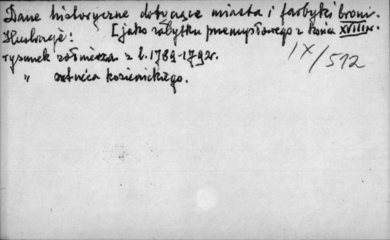 Dane historyczne dotyczące miasta i fabryki broni.
Ilustracje: [jako zabytku przemysłowego z końca XVIII w.
rysunek żołnierza z l. 1789-1792r.
" sztućca kozienickiego.
IX/512